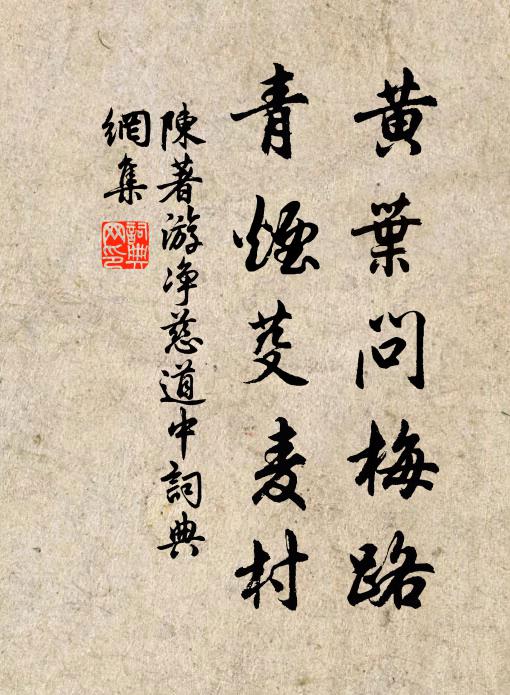 黃葉問梅路
青煙芟麦村
陳著游净慈道中詞典
網集
詞典
网印